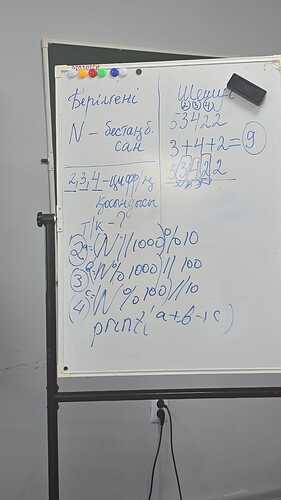 Берілгені
N - бестаңб.
сан
2,3,4-цифр/ң
қосындысы
Т/к - ?
2 a=(N//1000)%10
3 b=(N%1000)//100
4 c=(N%100)//10
print(a+b+c)
Шешуі
2 3 4
53422
3+4+2=9
53422